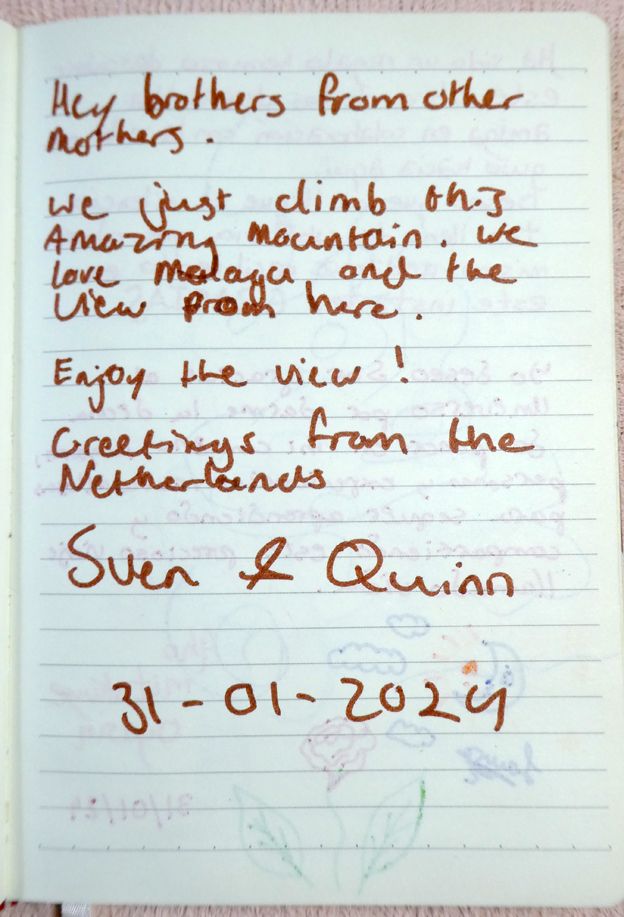 Hey brothers from other
mothers.
We just climb this
Amazing mountain. We
love Malaga and the
View from here.
Enjoy the view!
Greetings from the
Netherlands
Sven & Quinn
31-01-2024